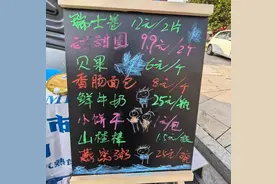 瑞士卷 12元/2片
甜甜圈 9.9元/2个
贝果 6元/个
香肠面包 8元/个
鲜牛奶 25元/瓶
小饼干 元/包
山楂棒
燕窝粥 25元/
市